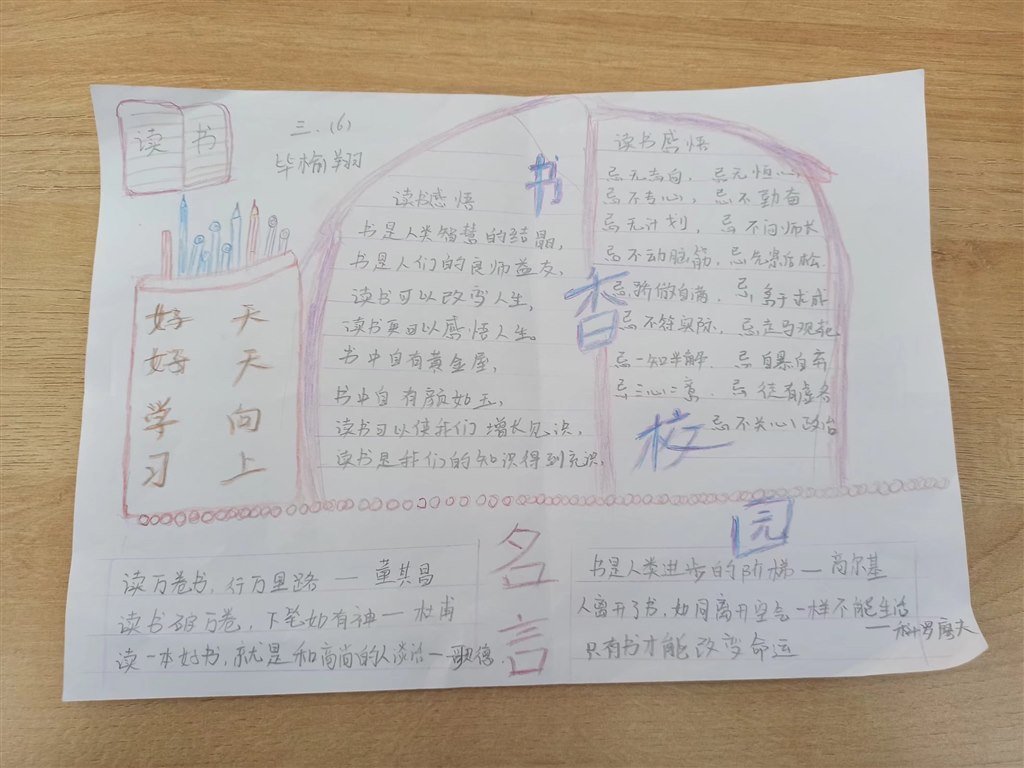 读书
三.(6)
毕榆翔
好 天
好 天
学 向
习 上
书香校园
读书感悟
书是人类智慧的结晶,
书是人们的良师益友,
读书可以改变人生,
读书更可以感悟人生。
书中自有黄金屋,
书中自有颜如玉,
读书可以使我们增长见识,
读书是我们的知识得到充识,
读书感悟
忌无志向, 忌无恒心
忌不专心, 忌不勤奋
忌无计划, 忌不问师长
忌不动脑筋, 忌
忌骄傲自满, 忌急于求成
忌不符实际, 忌走马观花
忌一知半解, 忌自暴自弃
忌三心二意. 忌徒有虚名
忌不关心政治
名言
读万卷书, 行万里路 — 董其昌
读书破万卷, 下笔如有神 — 杜甫
读一本好书, 就是和高尚的人谈话 — 歌德.
书是人类进步的阶梯 — 高尔基
人离开了书, 如同离开空气一样不能生活
— 科罗廖夫
只有书才能改变命运